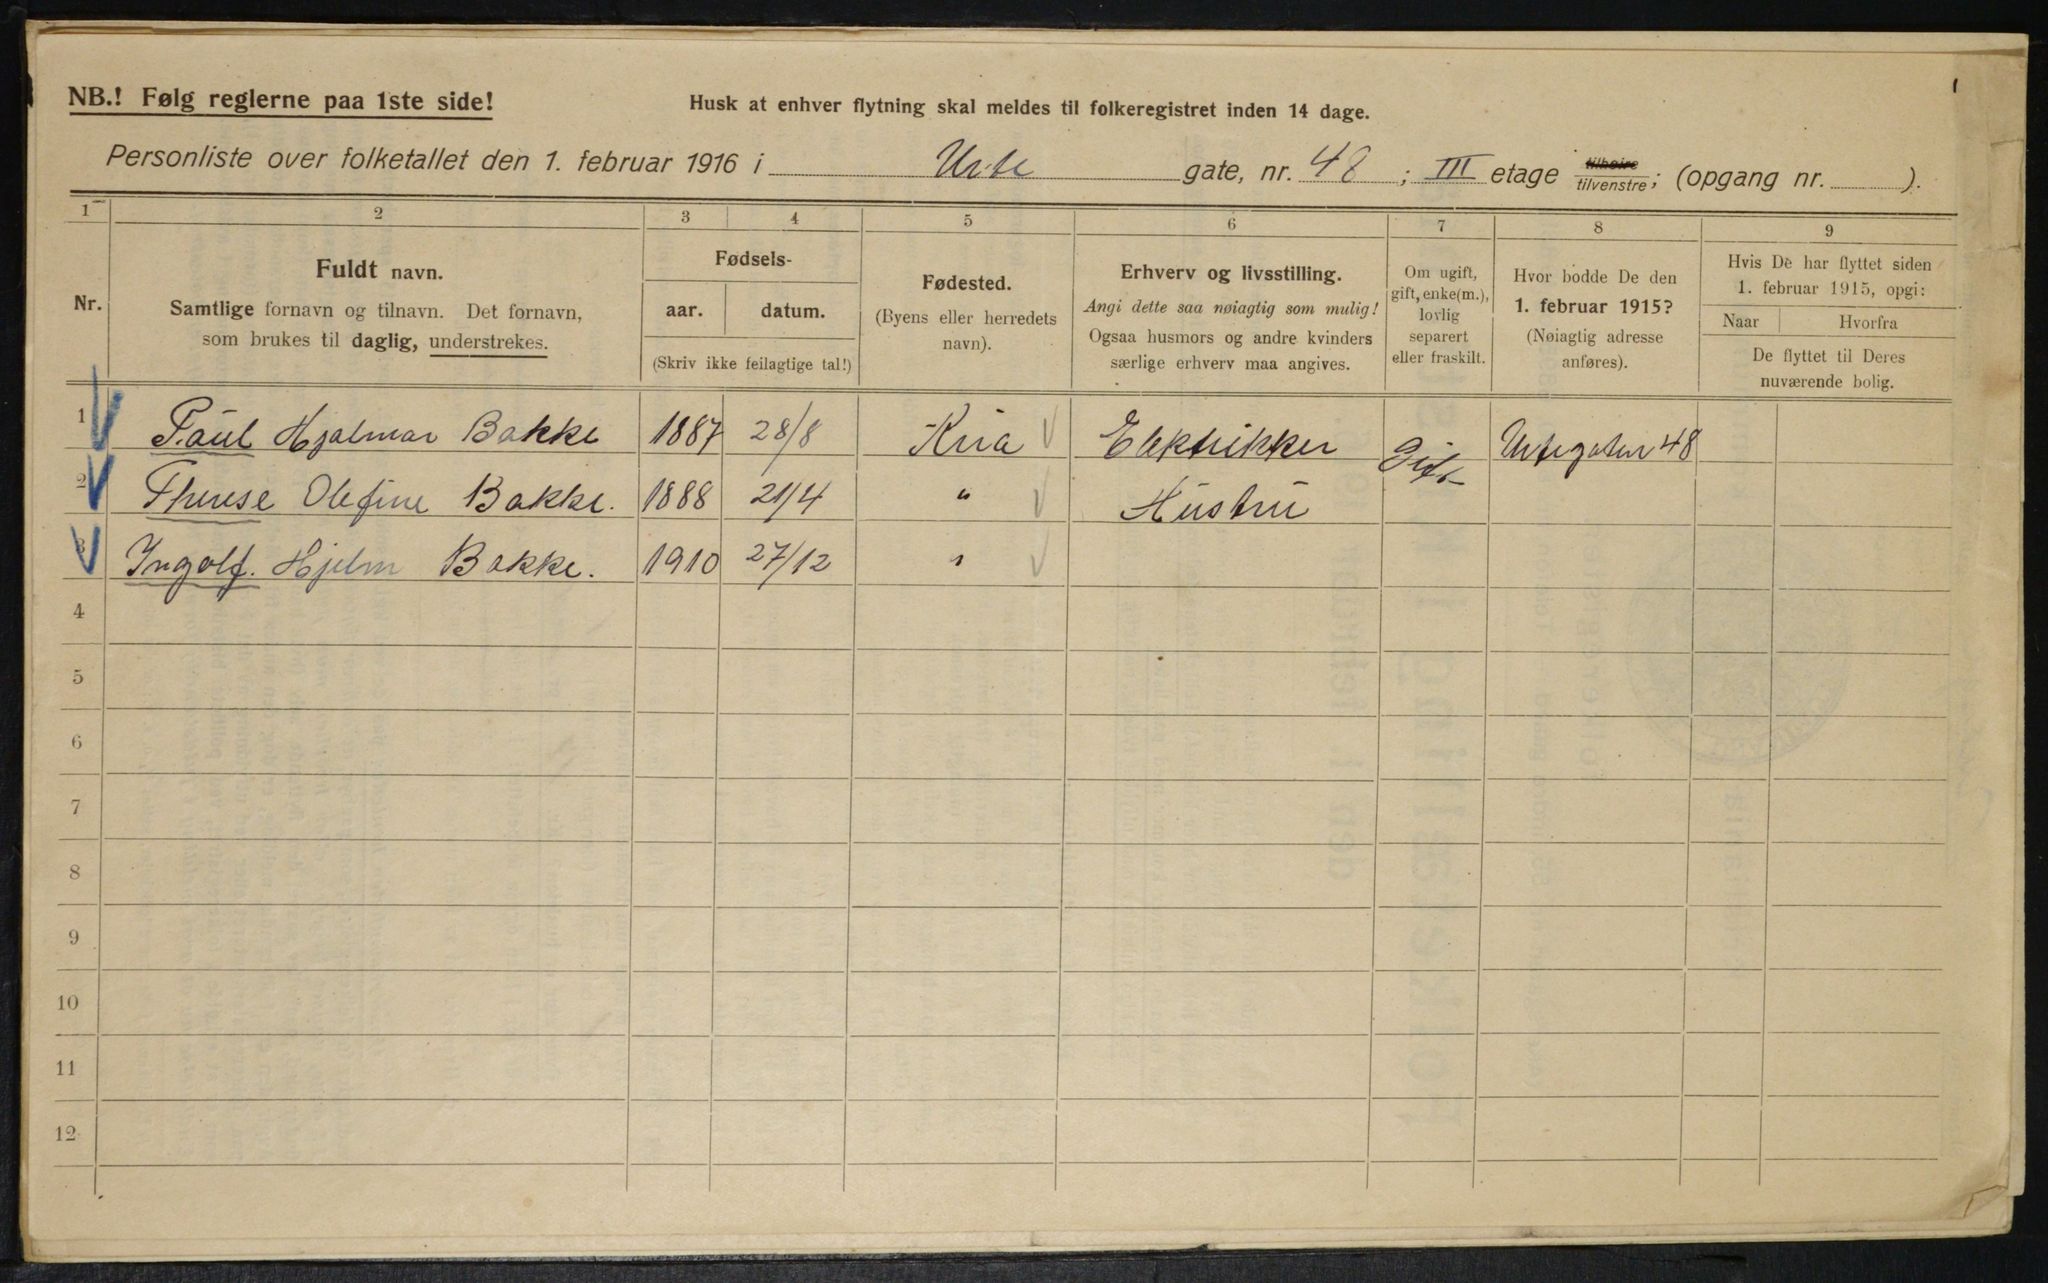 NB.! Følg reglerne paa 1ste side!
Husk at enhver flytning skal meldes til folkeregistret inden 14 dage.
Personliste over folketallet den 1. februar 1916 i Urte gate, nr. 48; III etage tilhøire/tilvenstre; (opgang nr. ).
1 2 3 4 5 6 7 8 9
Nr.
Fuldt navn.
Samtlige fornavn og tilnavn. Det fornavn,
som brukes til daglig, understrekes.
Fødsels-
aar. datum.
(Skriv ikke feilagtige tal!)
Fødested.
(Byens eller herredets
navn).
Erhverv og livsstilling.
Angi dette saa nøiagtig som mulig!
Ogsaa husmors og andre kvinders
særlige erhverv maa angives.
Om ugift,
gift, enke(m.),
lovlig
separert
eller fraskilt.
Hvor bodde De den
1. februar 1915?
(Nøiagtig adresse
anføres).
Hvis De har flyttet siden
1. februar 1915, opgi:
Naar Hvorfra
De flyttet til Deres
nuværende bolig.
1 Paul Hjalmar Bakke 1887 28/8 Kria Elektrikker Gift Urtegaten 48
2 Therese Olefine Bakke. 1888 21/4 " Hustru
3 Ingolf. Hjelm Bakke. 1910 27/12 "
4
5
6
7
8
9
10
11
12